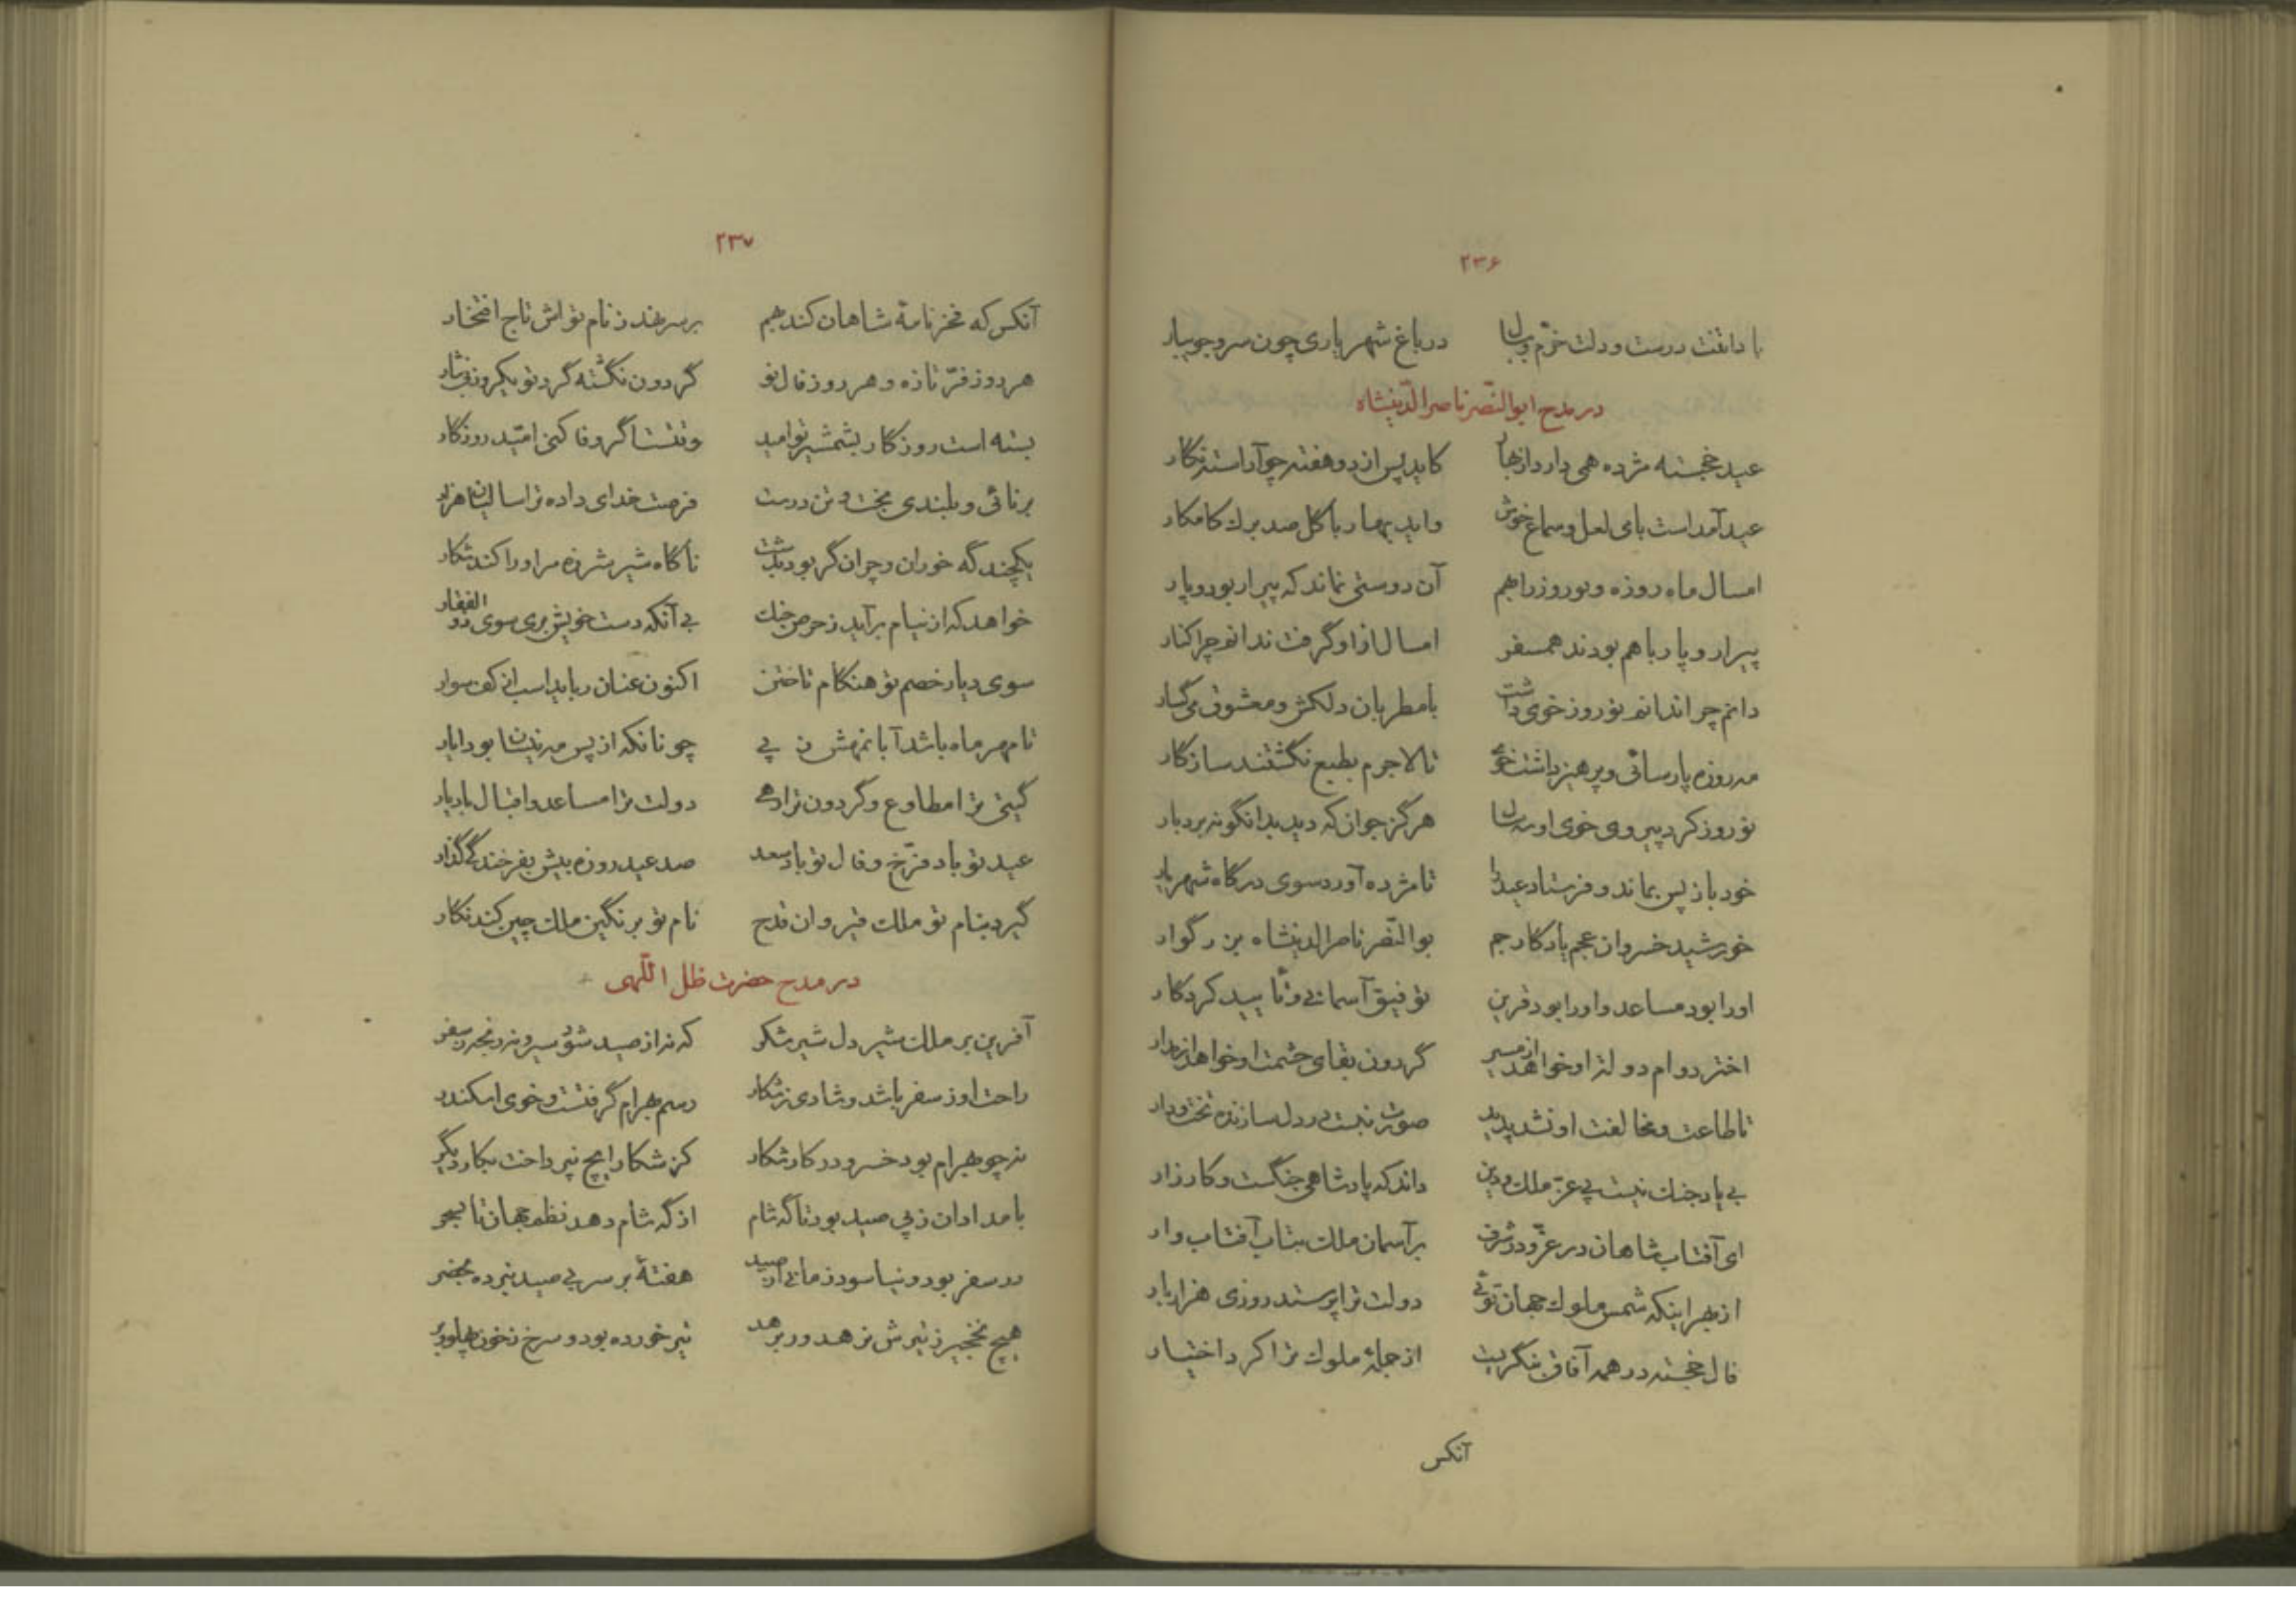 ۲۳۶
بادا تنت درست و دلت خرّم و لبان در باغ شهریاری چون سرو جویبار
در مدح ابوالنّصر ناصرالدّینشاه
عید خجسته مژده همی دارد از بهار کاید پس از دو هفته چو آراسته نگار
عید آمداست بامی لعل و سماع خوش واید بهار با گل صد برك کامکار
امسال ماه روزه و نوروز را بهم آن دوستی نماند که پیرار بود و پار
پیرار و پار با هم بودند همسفر امسال ازاو گرفت ندانم چرا کنار
دانم چرا ندانم نوروز خوی داشت با مطربان دلکش و معشوق می گسار
مه روزه پارسائی و پرهیز داشت خوی تا لاجرم بطبع نگشتند سازگار
نوروز کرد پیروی خوی او سه سال هرگز جوان که دید بدانگونه بردبار
خود باز پس بماند و فرستاد عید را تا مژده آورد سوی درگاه شهریار
خورشید خسروان عجم یادگار جم بوالنّصر ناصرالدینشاه بزرگوار
اورا بود مساعد و اورا بود قرین توفیق آسمانی و تأیید کردگار
اختر دوام دولت او خواهد از مسیر گردون بقای حشمت او خواهد از مدار
تا طاعت و مخالفت او نشد پدید صورت نبست در دل سازنده تخت و دار
بی یار جنك نیست پی عزّ ملك و دین داند که پادشاهی جنگست و کارزار
ای آفتاب شاهان در عزّ و در شرف بر آسمان ملك بتاب آفتاب وار
از بهر اینکه شمس ملوك جهان توئی دولت ترا پرستد روزی هزار بار
فال خجسته در همه آفاق بنگریست از جملهٔ ملوك ترا کرد اختیار
آنکس
۲۳۷
آنکس که فخر نامهٔ شاهان کند بهم بر سر نهند ز نام تو اش تاج افتخار
هر روز فرّ تازه و هر روز فال نو گردون نگشته گرد تو یکروز بی نثار
بسته است روزگار بشمشیر تو امید وقتست اگر وفا کنی امّید روزگار
برنائی و بلندی بخت و تن درست فرصت خدای داده ترا سالیان هزار
یکچند گه خوران و چران گر بود بدشت ناگاه شیر شرزه مر اورا کند شکار
خواهد که از نیام برآید ز حرص جنك بی آنکه دست خویش بری سوی ذوالفقار
سوی دیار خصم تو هنگام تاختن اکنون عنان رباید اسب از کف سوار
تا مهر ماه باشد آبانمهش ز پی چونانکه از پس مه نیسان بود ایار
گیتی ترا مطاوع و گردون ترا رهی دولت ترا مساعد و اقبال باد یار
عید تو باد فرّخ و فال تو باد سعد صد عید روزه بیش بفرخندگی گذار
گیرد بنام تو ملك قیروان قدح نام تو بر نگین ملك چین کند نگار
در مدح حضرت ظل اللّهی
آفرین بر ملك شیر دل شیر شکر که نه از صید شود سیر و نه رنجه ز سفر
راحت او ز سفر باشد و شادی ز شکار رسم بهرام گرفتست و خوی اسکندر
نه چو بهرام بود خسرو در کار شکار کز شکار ایچ نپرداخت بکار دیگر
بامدادان ز پی صید بود تا گه شام از گه شام دهد نظم جهان تا بسحر
در سفر بود و نیاسود زمانی از صید هفتهٔ بر سر بی صید نبرده بحضر
هیچ نخجیر ز تیرش نرهد ور برهد تیر خورده بود و سرخ ز خون پهلو و بر